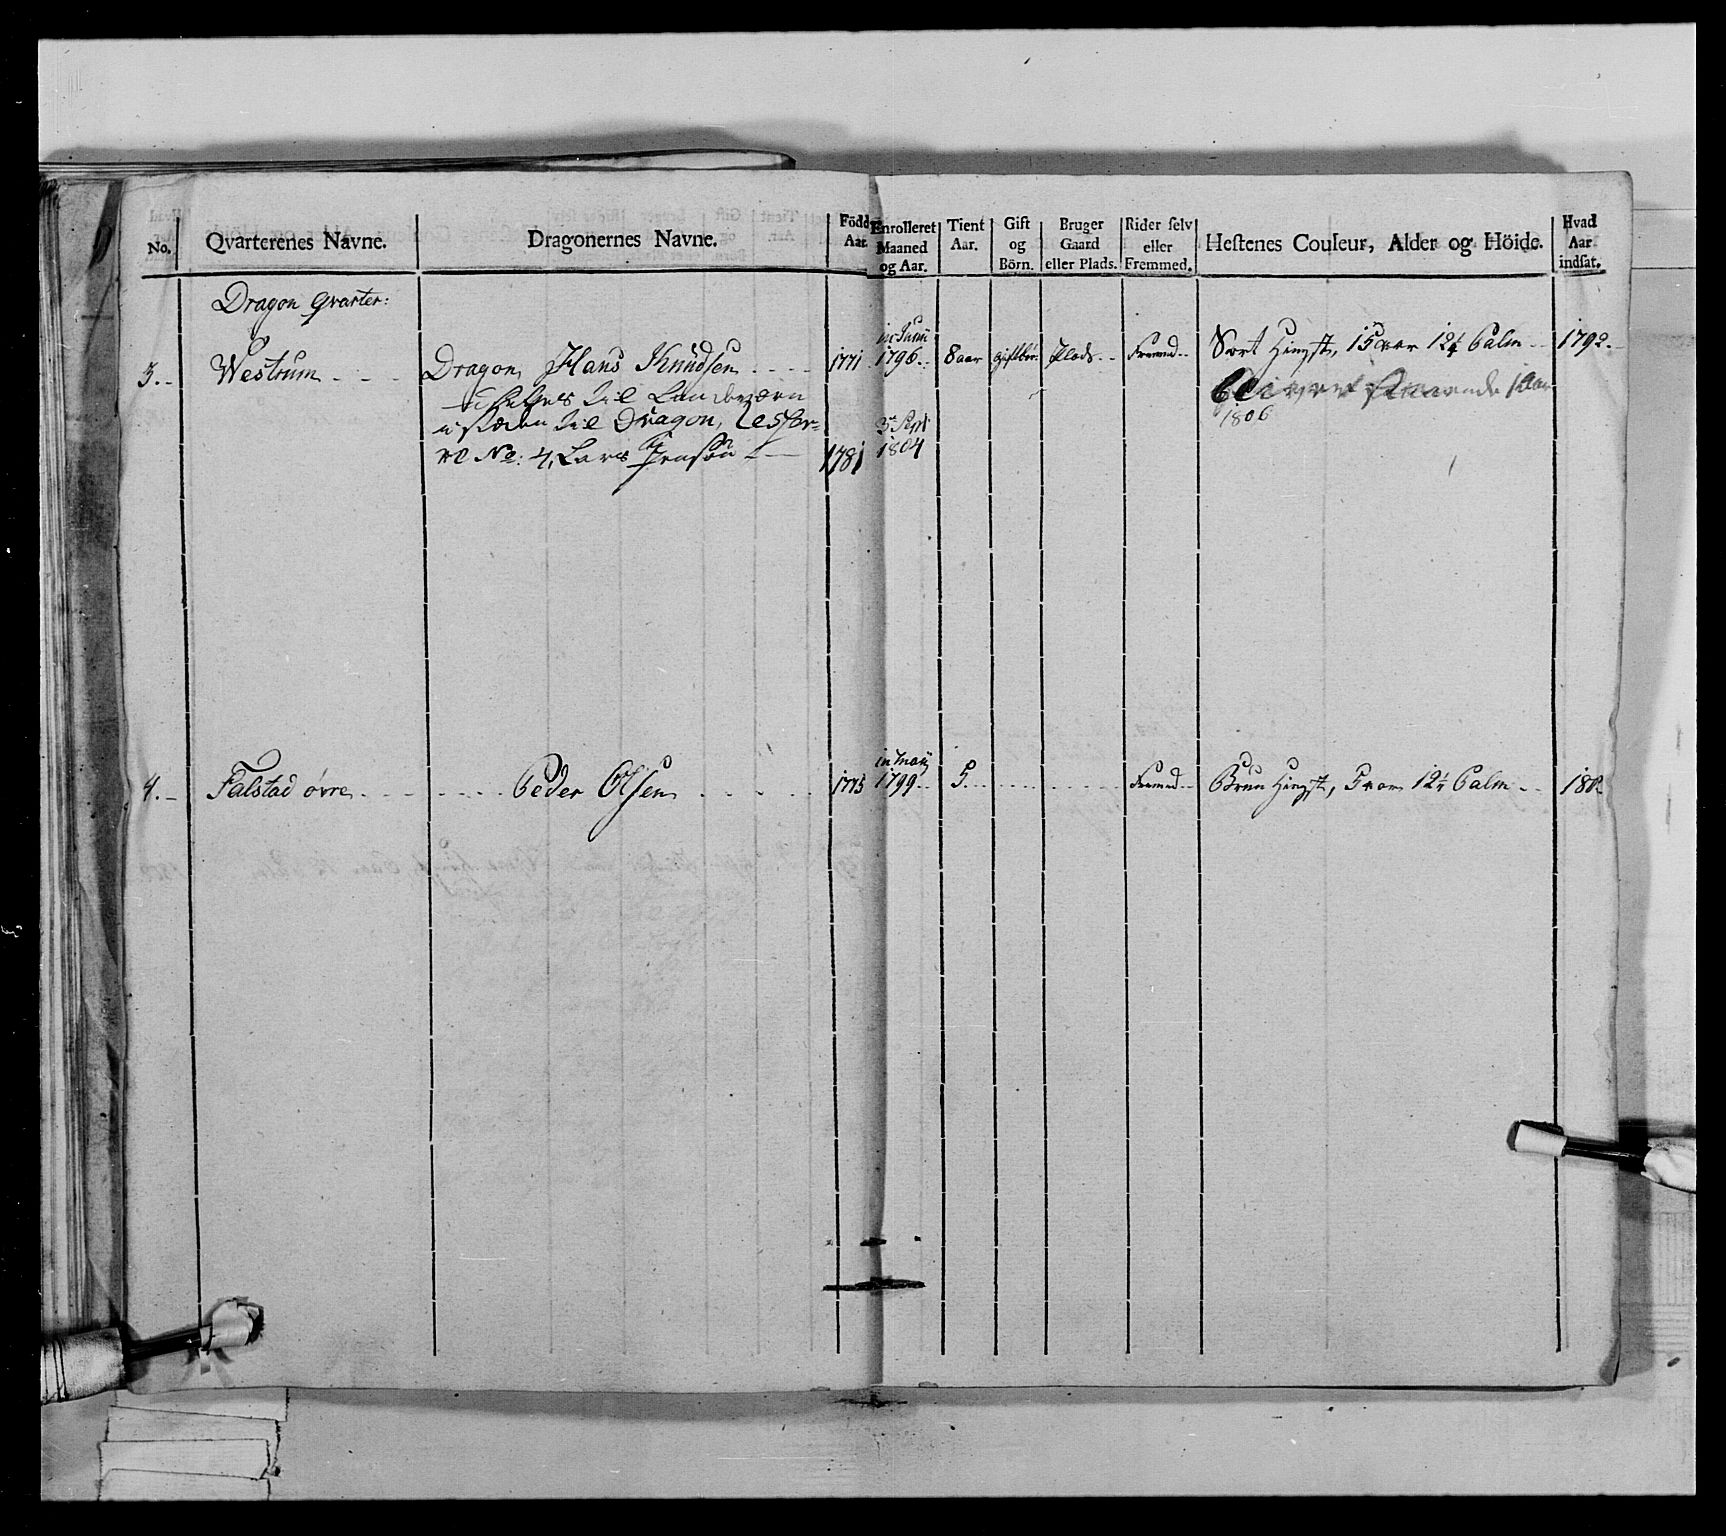 No. Qvarterenes Navne. Dragonernes Navne. Född Aar. Enrolleret Maaned og Aar. Tient Aar. Gift og Börn. Bruger Gaard eller Plads. Rider selv eller Fremmed. Hestenes Couleur, Alder og Höide. Hvad Aar indsat.
Dragon Qvarter:
3. Westrum Dragon Hans Knudsen 1771 in Junii 1796 8 aar gift Plads Fremmed Sort Hingst, 15 aar 12¼ Palm 1792
til Landeværn
1806
i steden til Dragon,
No: 4, Lars Jensen 1781 3 Sept 1804
4. Falstad övre Peder Olsen 1775 in May 1799 5 Fremmed Brun Hingst, 5 aar 12¼ Palm 180